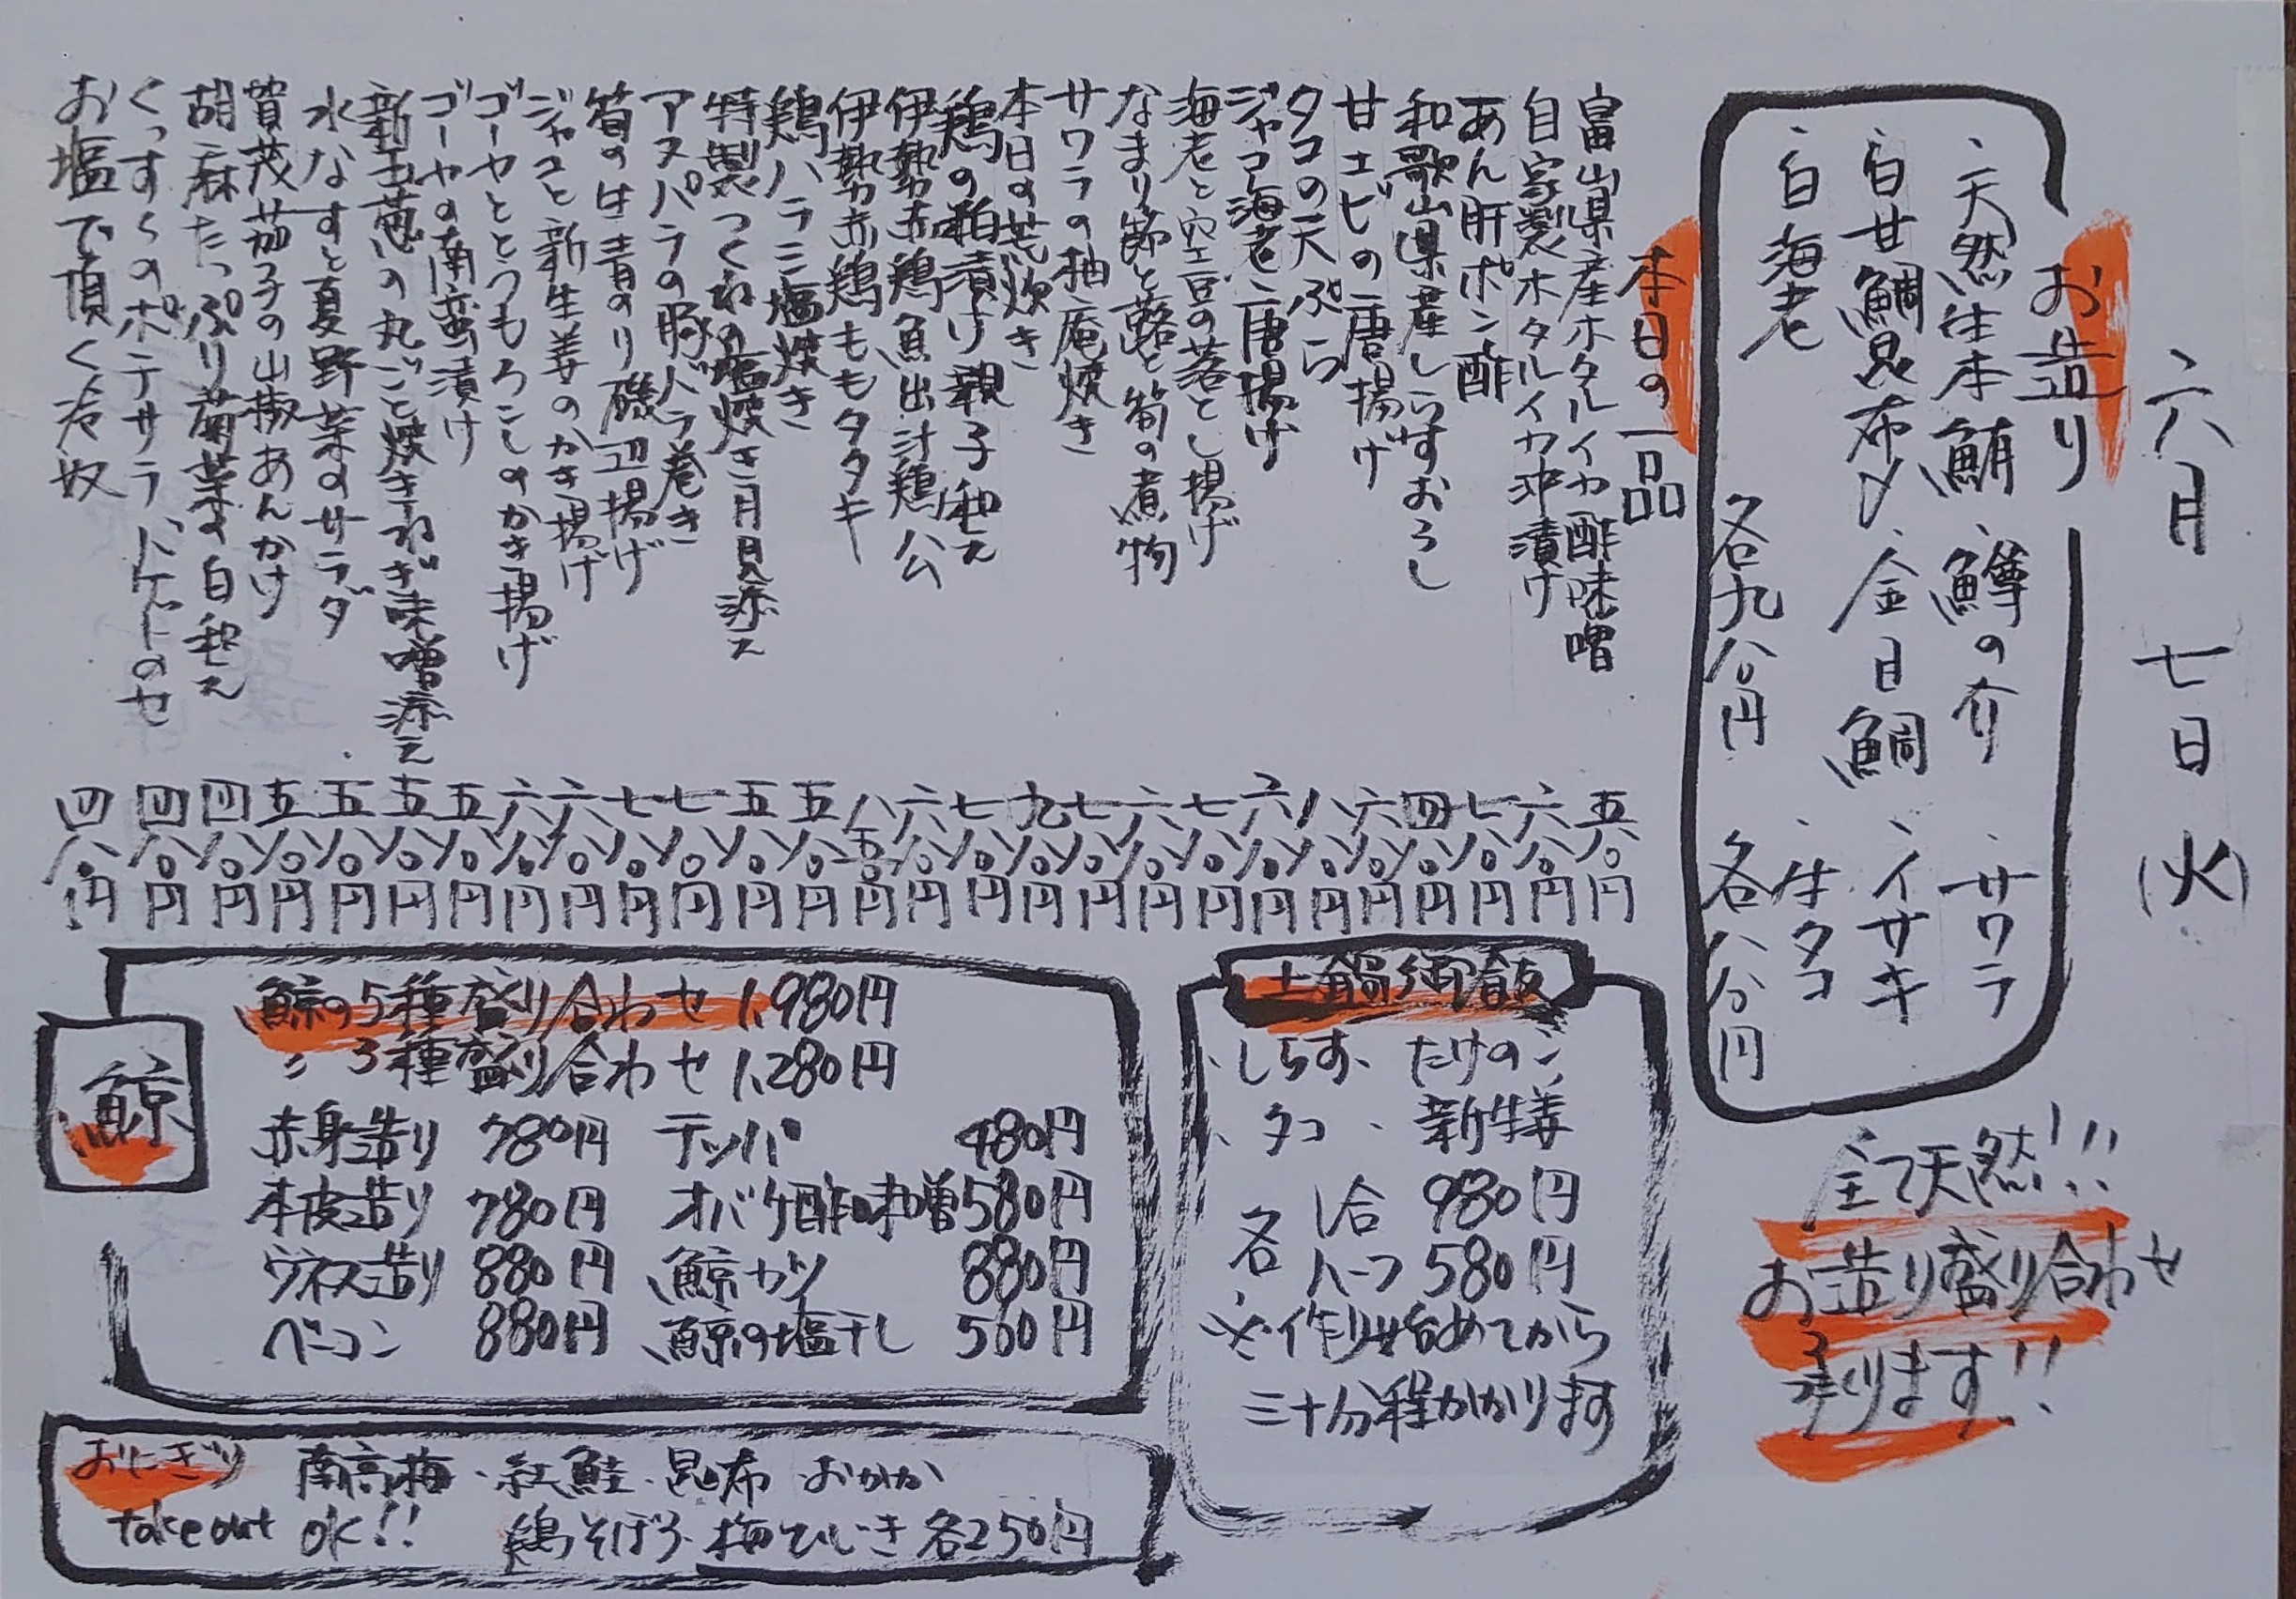 六月七日(火)
お造り
・天然生本鮪・鱒の介・サワラ
・白甘鯛昆布〆・金目鯛・イサキ
・白海老・生タコ
各九八〇円 各八八〇円
全て天然!!!
お造り盛り合わせ
承ります!!
本日の一品
富山県産ホタルイカ酢味噌 五八〇円
自家製ホタルイカ沖漬け 六八〇円
あん肝ポン酢 七八〇円
和歌山県産しらすおろし 四八〇円
甘エビの唐揚げ 六八〇円
タコの天ぷら 八八〇円
ジャコ海老唐揚げ 六八〇円
海老と空豆の落とし揚げ 七八〇円
なまり節と蕗と筍の煮物 六八〇円
サワラの柚庵焼き 七八〇円
本日の荒炊き 九八〇円
鶏の粕漬け親子和え 七八〇円
伊勢赤鶏魚出汁鶏公 六八〇円
伊勢赤鶏ももタタキ 八五〇円
鶏ハラミ塩焼き 五八〇円
特製つくねの塩焼き月見添え 五八〇円
アスパラの豚バラ巻き 七八〇円
筍の生青のり磯辺揚げ 七八〇円
ジャコと新生姜のかき揚げ 六八〇円
ゴーヤととうもろこしのかき揚げ 六八〇円
ゴーヤの南蛮漬け 五八〇円
新玉葱の丸ごと焼きねぎ味噌添え 五八〇円
水なすと夏野菜のサラダ 五八〇円
賀茂茄子の山椒あんかけ 五八〇円
胡麻たっぷり菊菜の白和え 四八〇円
くっすくのポテサラトケトのせ 四八〇円
お塩で頂く冷奴 四八〇円
土鍋御飯
・しらす、たけのこ
・タコ、新生姜
各 1合 980円
ハーフ 580円
※作り始めてから
三十分程かかります
鯨
鯨の5種盛り合わせ 1,980円
〃 3種盛り合わせ 1,280円
赤身造り 780円 テッパ 480円
本皮造り 780円 オバケ酢味噌 580円
ウネス造り 880円 鯨カツ 880円
ベーコン 880円 鯨の塩干し 560円
おにぎり 南高梅・紅鮭・昆布 おかか
take out OK!! 鶏そぼろ・梅ひじき 各250円